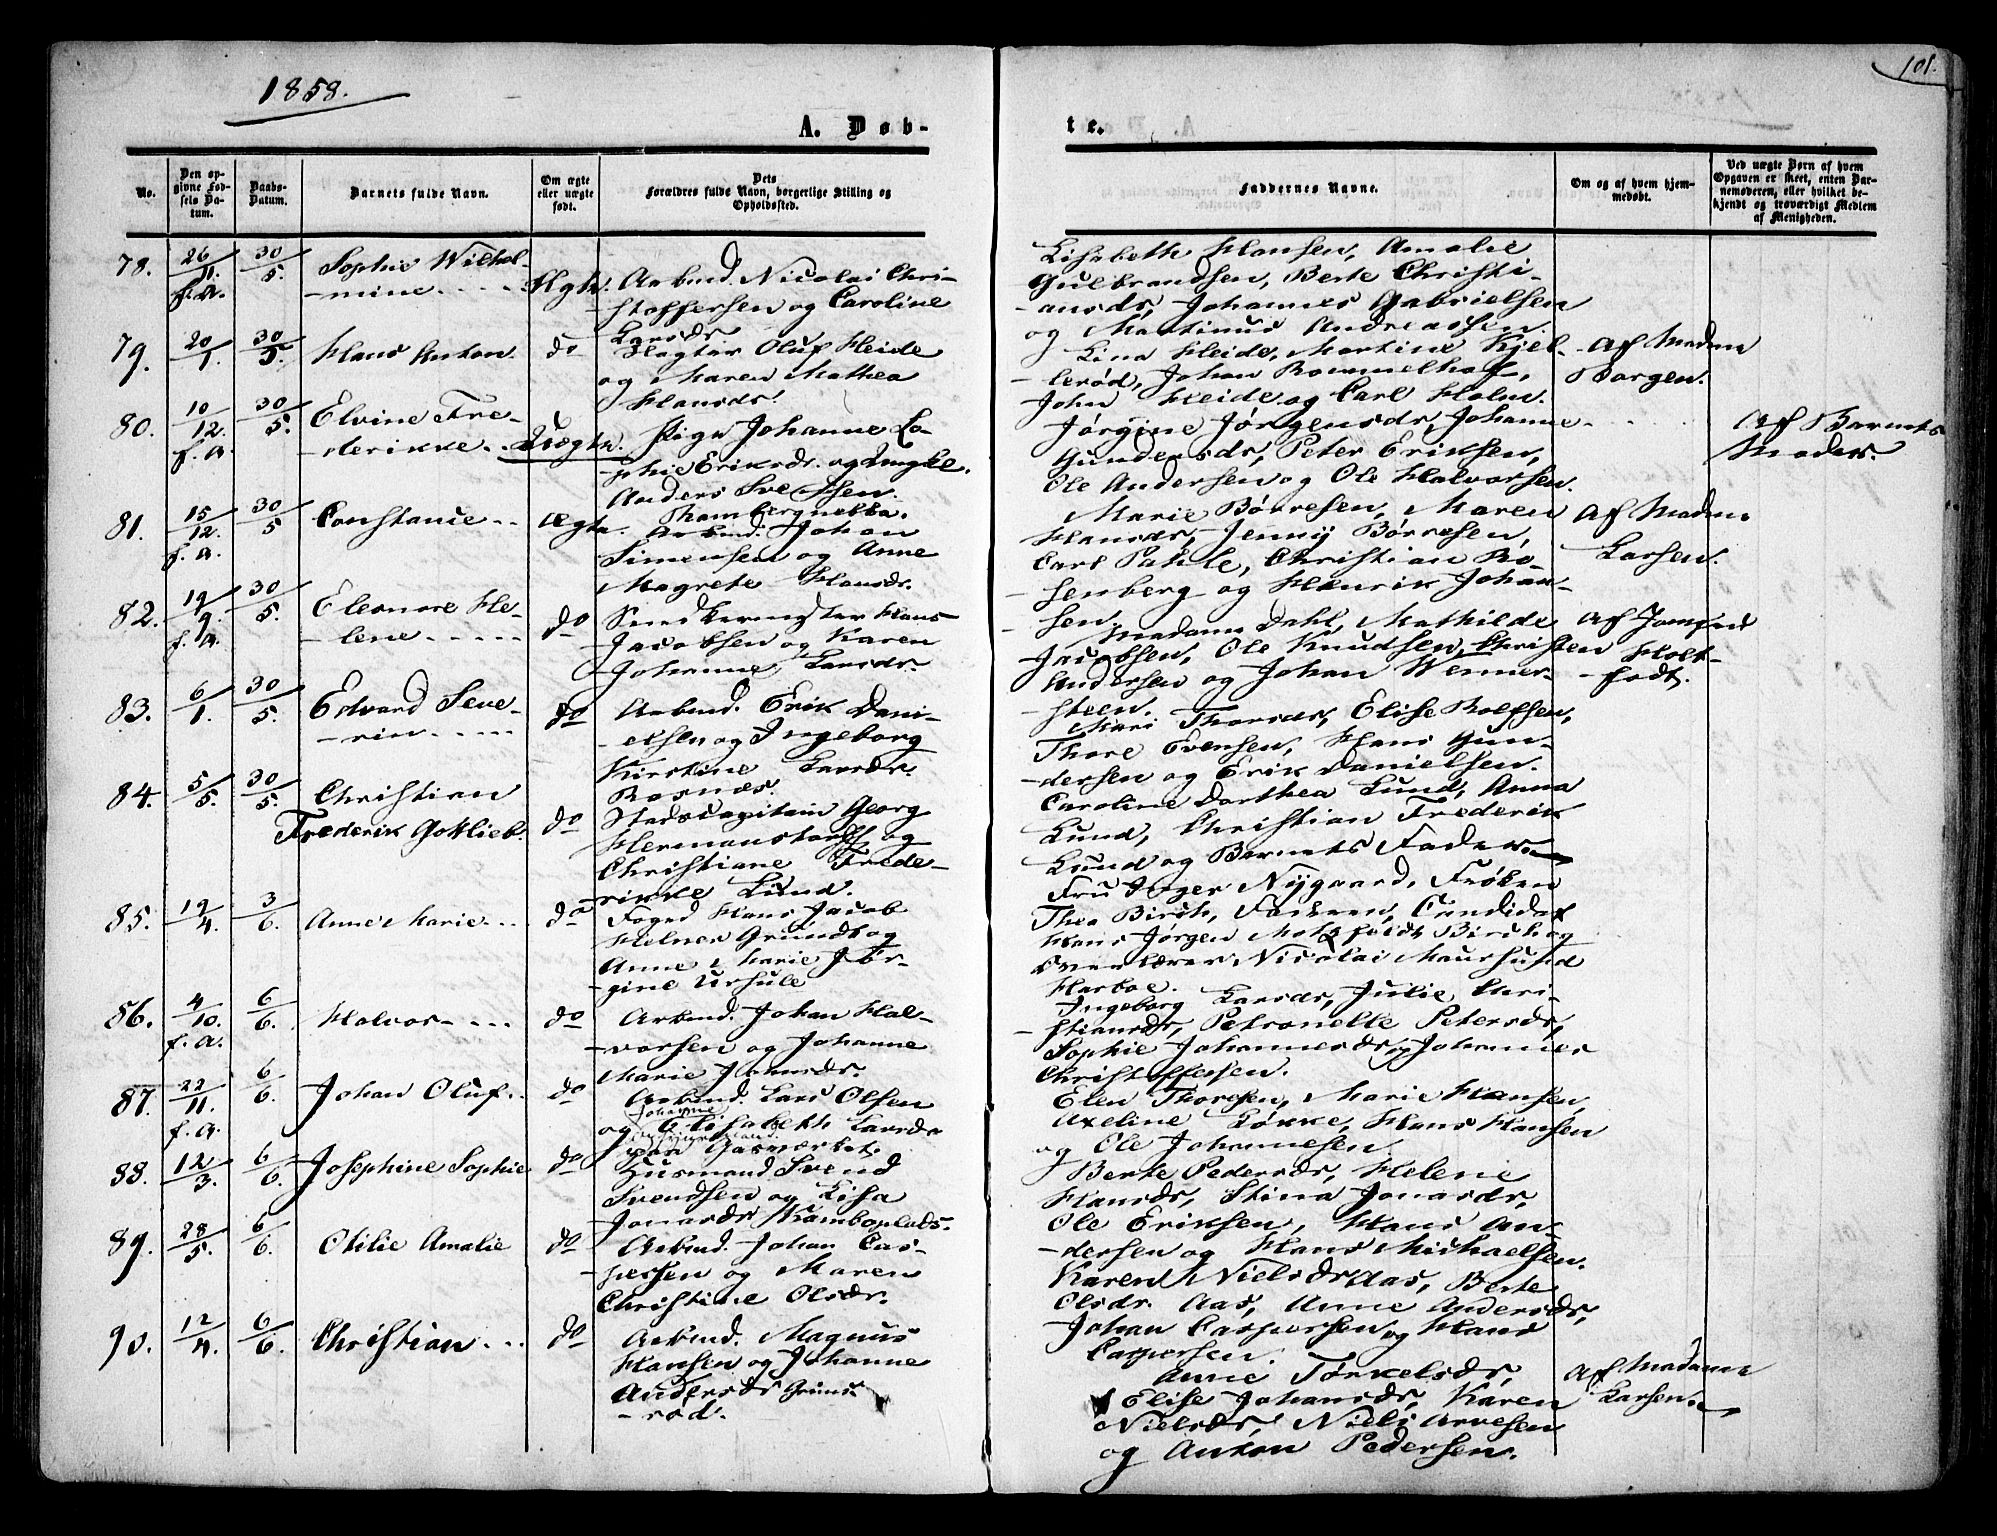 1858.
101.
A. Døb-
te.
No.
Den op-
givne Fød-
sels Da-
tum.
Daabs-
Datum.
Barnets fulde Navn.
Om ægte
eller uægte
født.
Dets
Forældres fulde Navn, borgerlige Stilling og
Opholdssted.
Faddernes Navne.
Om og af hvem hjem-
medøbt.
Ved uægte Børn af hvem
Opgaven er skeet, enten Bar-
nemoderen, eller hvilket be-
kjendt og troværdigt Medlem
af Menigheden.
78. 26/11. f.a. 30/5. Sophie Wilhel-
-mine Ægte.
Arbmd. Nicolai Chri-
-stoffersen og Caroline
Larsdr.
Lisabeth Hansen, Amalie
Gulbrandsen, Berte Christi-
-ansdr, Johannes Gabrielsen
og Martinus Andreassen.
79. 20/1. 30/5. Hans Anton. do
Oluf Heide
og Maren Mathea
Hansdr.
Lina Heide, Martine Kjel-
-lerød, Johan Rommelhof,
John Heide og Carl Holm.
Af Madam
Borgen.
80. 10/12. f.a. 30/5. Elvine Fre-
-derikke. Uægte.
Pige Johanne So-
phie Eriksdr. og Ungkl.
Anders Svendsen.
Jørgine Jørgensdr, Johanne
Gundersdr, Peter Eriksen,
Ole Andersen og Ole Halvorsen.
Af Barnets
Moder.
81. 15/12. f.a. 30/5. Constance Ægte.
Arbmd. Johan
Simensen og Anne
Magrete Hansdr.
Marie Børresen, Maren
Hansdr, Jenny Børresen,
Carl Pahle, Christian Ro-
senberg og Henrik Johan-
-sen.
Af Madam
Larsen.
82. 19/9. f.a. 30/5. Eleonore He-
-lene do
Hans
Jacobsen og Karen
Johanne Larsdr.
Madam Dahl, Mathilde
Jacobsen, Ole Knudsen, Christen
Andersen og Johan Wenner-
-steen.
Af Jomfru
Holt-
-fodt.
83. 6/1. 30/5. Edvard Seve-
-rin do
Arbmd. Erik Dani-
-elsen og Ingeborg
Kirstine Larsdr.
Rosnæs.
Mari Thorsdr, Elise Rolfsen,
Thore Evensen, Hans Gun-
-dersen og Erik Danielsen.
84. 5/5. 30/5. Christian
Frederik Gotlieb. do
Stadscapitain Georg
Hermanstorff og
Christiane Frede-
-rikke Lund.
Caroline Dorthea Lund, Anna
Lund, Christian Frederik
Lund og Barnets Fader.
85. 19/4. 3/6. Anne Marie do
Foged Hans Jacob
Helner Grundt og
Anne Marie Jør-
-gine Ursule
Fru Inger Nygaard, Frøken
Thea Birch, Faderen, Candidat
Hans Jørgen Motzfeldt Birch og
Overlærer Nicolai Maursund
Harboe.
86. 4/10. f.a. 6/6. Halvor do
Arbmd. Johan Hal-
-vorsen og Johanne
Marie
Ingeborg Larsdr, Julie Chri-
-stiansdr, Petronelle Petersdr,
Sophie Johannesdr og Johannes
Christoffersen.
87. 22/11. f.a. 6/6. Johan Oluf. do
Arbmd. Lars Olsen
og Johanne Elisabeth Larsdr
paa Gasværket.
Elen Thoresen, Marie Hansen,
Axeline Løkke, Hans Hansen
og Ole Johannesen.
88. 12/3. 6/6. Josephine Sophie do
Husmand Svend
Svendsen og Lisa
Jonasdr
Berte Pedersdr, Helene
Hansdr, Stina Jonasdr,
Ole Eriksen, Hans An-
-dersen og Hans Michaelsen.
89. 28/5. 6/6. Otilie Amalie do
Arbmd. Johan Cas-
-persen og Maren
Christine Olsdr.
Karen Nielsdr Aas, Berte
Olsdr. Aas, Anne Andersdr,
Johan Caspersen og Hans
Caspersen.
90. 12/4. 6/6. Christian do
Arbmd. Magnus
Hansen og Johanne
Andersdr Grims-
-rød.
Anne Torkelsdr,
Elise Johansdr, Karen
Nielsdr, Niels Arvesen
og Anton Pedersen.
Af Madam
Larsen.